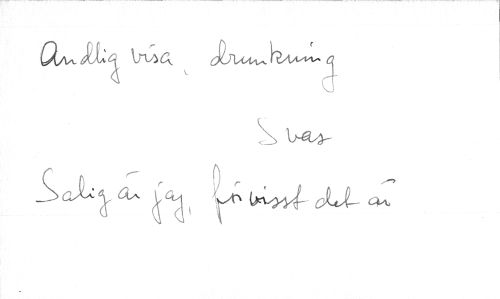 Andlig visa, drunkning
Svas
Salig är jag, förvisst det är